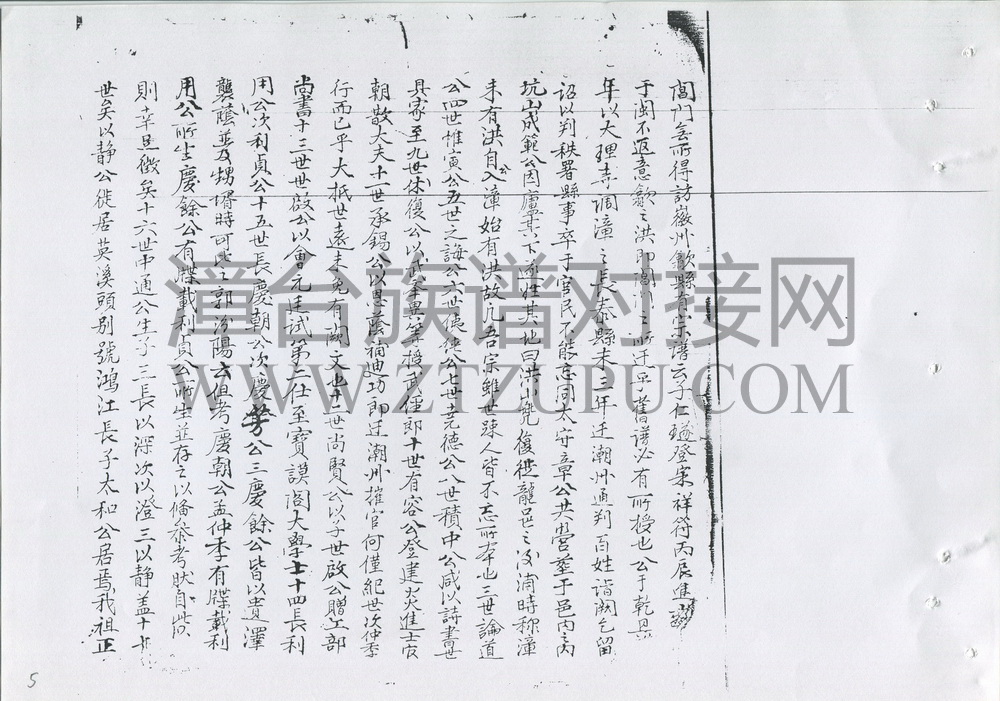 閩門無所得訪徽州歙縣有宗譜云子仁璲登宋祥符丙辰進
于閩不返意歙之洪即閩洪之所迁乎舊譜必有所授也公于乾
年以大理寺調漳之長泰縣未三年迁潮州通判百姓詣闕乞留
詔以判秩署縣事卒于官民不能忘同太守章公共營塟于邑内之內
坑山成範公因廬其下遂姓其地曰洪山兜復徙龍邑之汝浦時称漳
未有洪自公入漳始有洪故凡吾宗雖世踈人皆不忘所本也三世論道
公四世惟寅公五世之誨公六世德俠公七世克德公八世積中公咸以詩書世
其家至九世休復公以武舉異等授武僅郎十世有容公登建炎進士官
朝散大夫十一世承錫公以恩蔭補迪功郎迁潮州推官何僅紀世次仲季
行而已乎大抵世遠未免有闕文也十二世尚賢公以子世啟公贈工部
尚書十三世世啟公以會元廷試第二仕至寶謨閣大學士十四長利
用公次利貞公十五世長慶朝公次慶芳公三慶餘公皆以貴澤
襲蔭並及甥壻時可比之郭汾陽云但考慶朝公盖仲季有牒載利
用公所生慶餘公有牒載利貞公所生並存之以俻參考肰自此
則幸無徵矣十六世中通公生子三長以深次以澄三以静盖十七
世矣以静公徙居英溪頭别號鴻江長子太和公居焉我祖正
漳台族谱对接网
WWW.ZTZUPU.COM
5